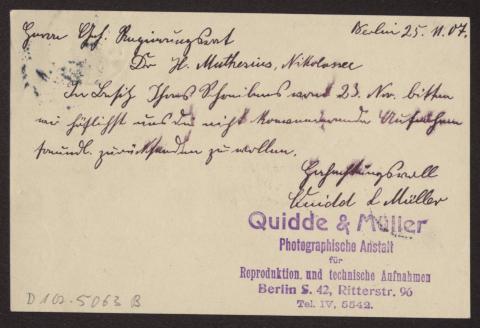 Berlin 25. 11. 07.
Herrn Geh. Regierungsrat
Dr H. Muthesius, Nikolassee
Im Besitz Ihres Schreibens vom 23. Nov. bitten
wir höflichst uns die nicht konvenierende Aufnahme
freundl. zurücksenden zu wollen.
Hochachtungsvoll
Quidde & Müller
Quidde & Müller
Photographische Anstalt
für
Reproduktion. und technische Aufnahmen
Berlin S. 42, Ritterstr. 96
Tel. IV, 5542.
D 102-5063 B